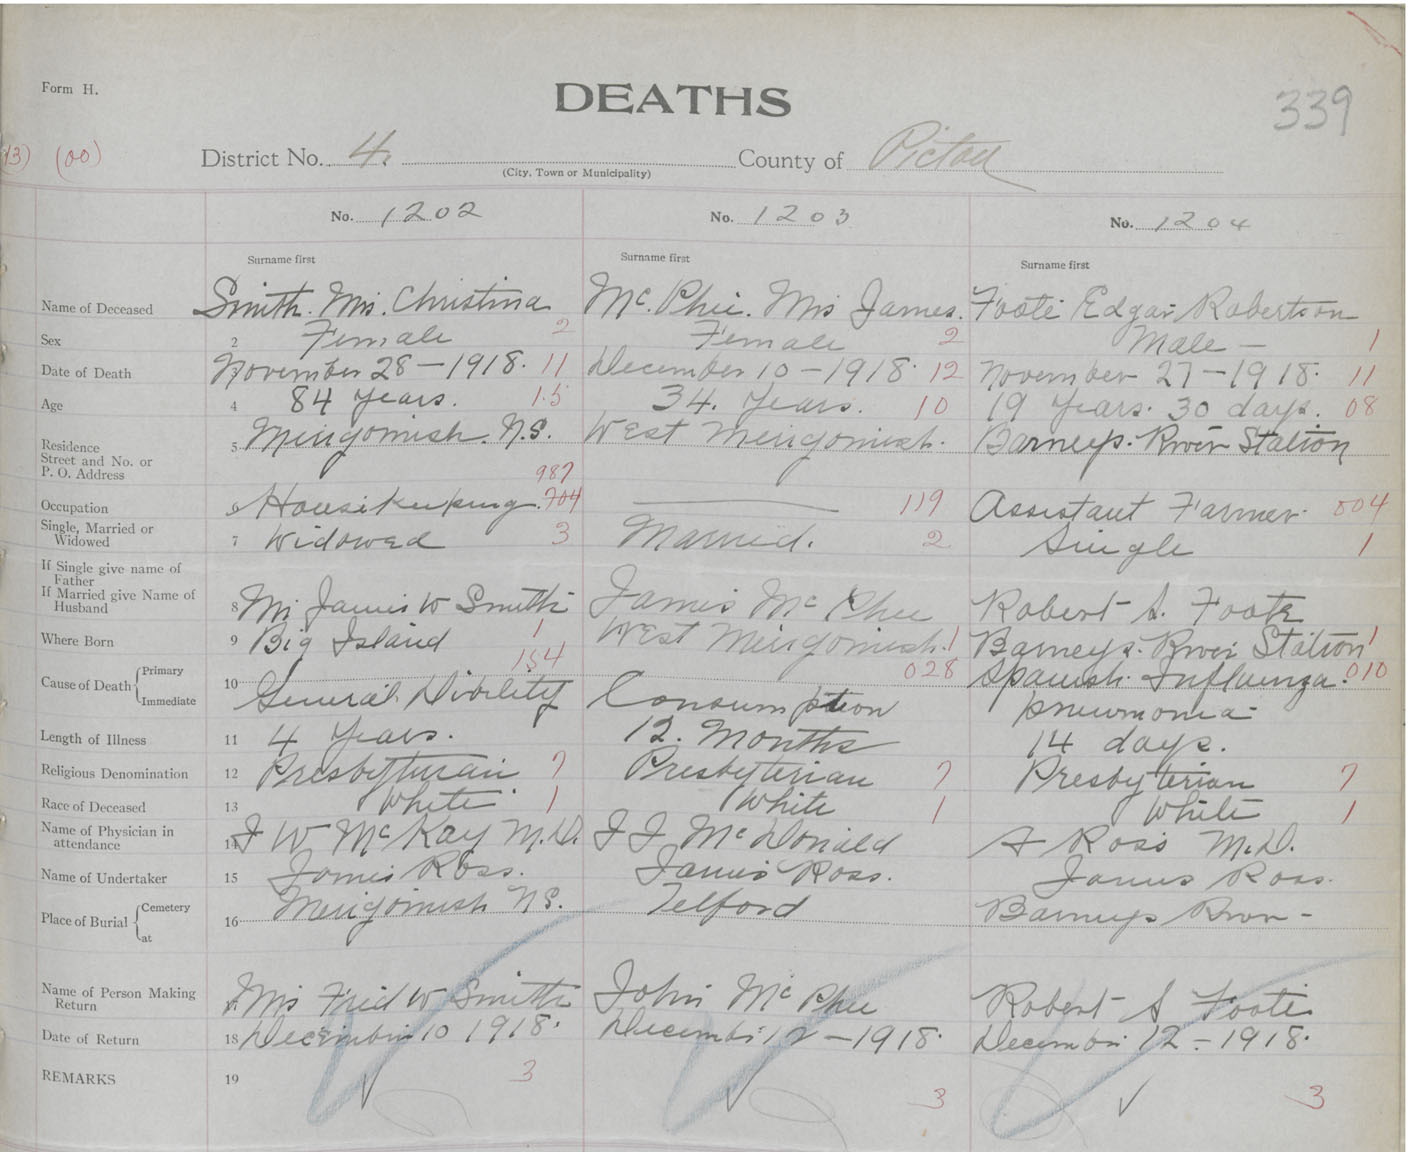 Form H.
DEATHS
339
13) (00)
District No. 4. County of Pictou
(City, Town or Municipality)
No. 1202 No. 1203 No. 1204
Surname first Surname first Surname first
Name of Deceased Smith. Mrs. Christina Mc. Phee. Mrs James. Foote Edgar Robertson
Sex 2 Female 2 Female 2 Male — 1
Date of Death November 28 — 1918. 11 December 10 — 1918. 12 November 27 — 1918. 11
Age 4 84 Years. 15 34. Years. 10 19 Years. 30 days. 08
Residence
Street and No. or
P. O. Address 5 Merigomish. N.S. West Merigomish. Barneys. River Station
987
Occupation 6 Housekeeping. 704 119 Assistant Farmer. 004
Single, Married or
Widowed 7 Widowed 3 Married. 2 Single 1
If Single give name of
Father
If Married give Name of
Husband 8 Mr James W Smith James Mc Phee Robert S. Foote
Where Born 9 Big Island 1 West Merigomish. 1 Barneys. River Station 1
154 028
Cause of Death { Primary Spanish. Influenza. 010
Immediate 10 General Debility Consumption pneumonia
Length of Illness 11 4 Years. 12. Months 14 days.
Religious Denomination 12 Presbyterian 7 Presbyterian 7 Presbyterian 7
Race of Deceased 13 White 1 White 1 White 1
Name of Physician in
attendance 14 J W McKay M.D. J J McDonald A Ross M.D.
Name of Undertaker 15 James Ross. James Ross. James Ross.
Place of Burial { Cemetery
at 16 Merigomish N.S. Telford Barneys River -
Name of Person Making
Return Mrs Fred W Smith John Mc Phee Robert S Foote
Date of Return 18 December 10 1918. December 12 — 1918. December 12 — 1918.
REMARKS 19 3 3 3